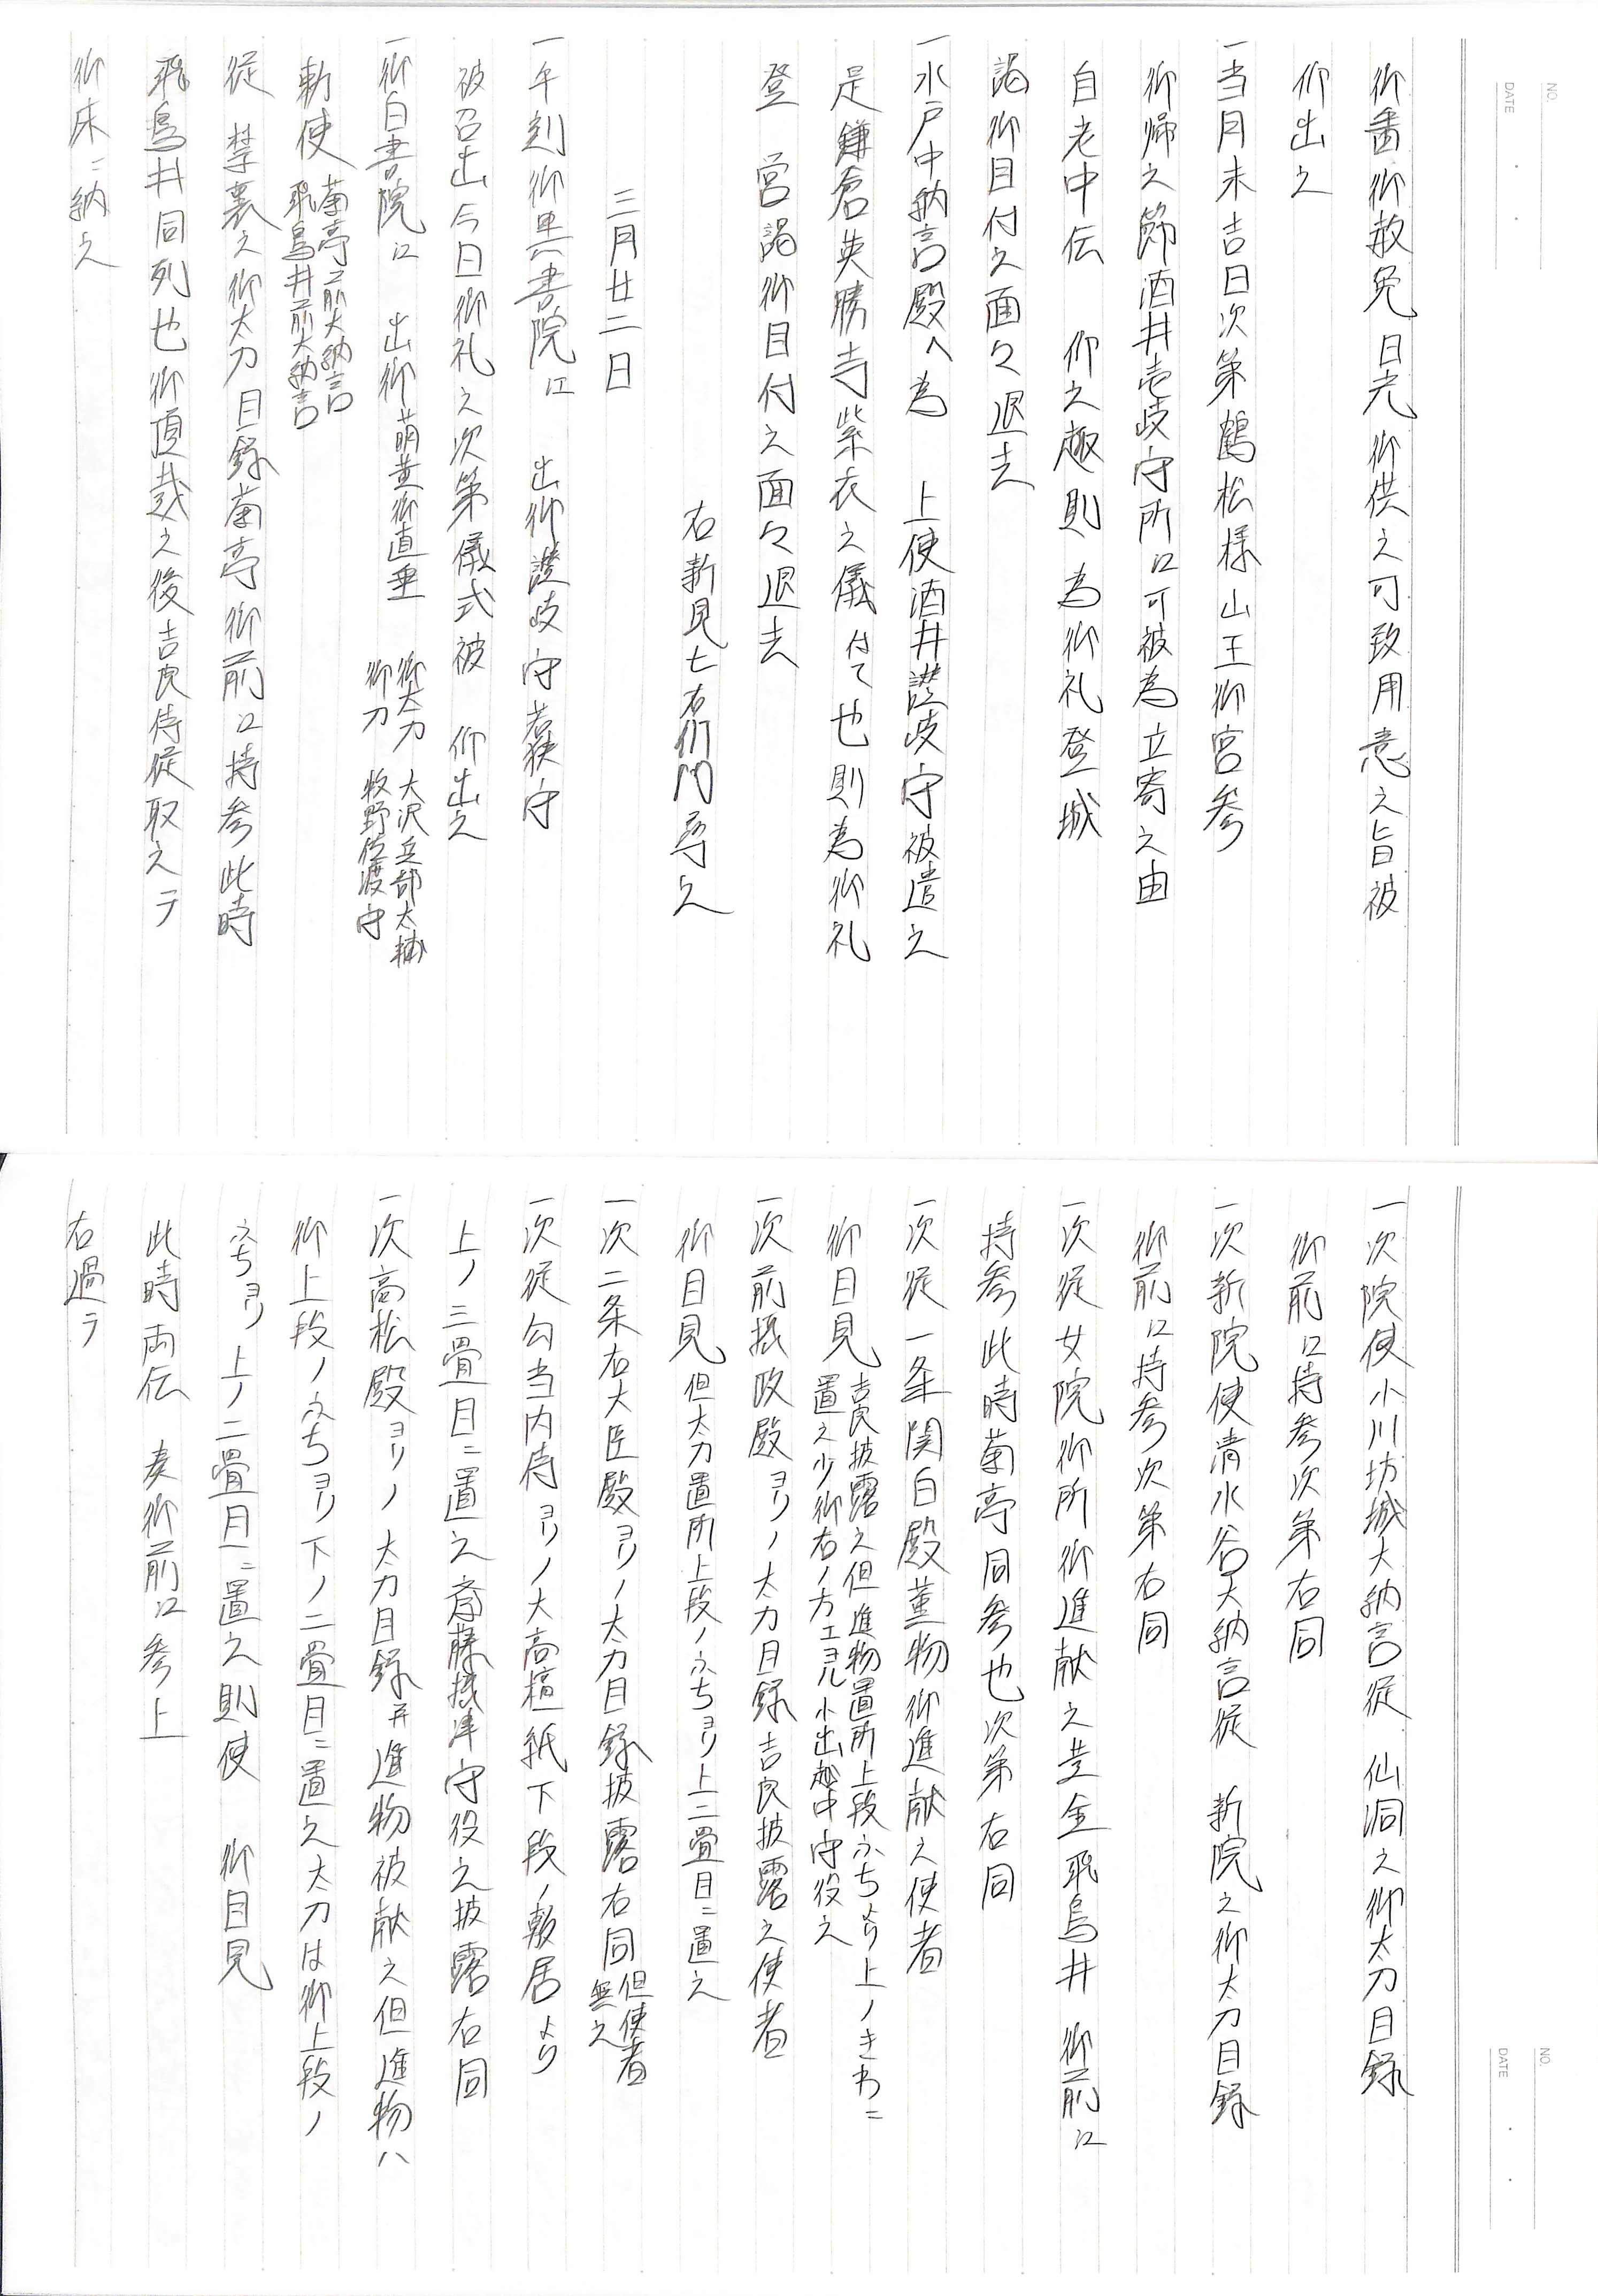 NO.
DATE
御番御赦免日光御供之可致用意之旨被
仰出之
一当月末吉日次第鶴松様山王御宮参
御帰之節酒井壱岐守所江可被為立寄之由
自老中伝 仰之趣則為御礼登城
謁御目付之面々退去
一水戸中納言殿へ為 上使酒井讃岐守被遣之
是鎌倉英勝寺紫衣之儀付て也則為御礼
登 営謁御目付之面々退去
右新見七右衛門尋之
三月廿二日
一午刻御黒書院江 出御讃岐守若狭守
被召出今日御礼之次第儀式被 仰出之
一御白書院江 出御萌黄御直垂 御太刀 大沢兵部太輔
御刀 牧野佐渡守
勅使 菊亭前大納言
飛鳥井前大納言
従 禁裏之御太刀目録菊亭御前江持参此時
飛鳥井同列也御頂戴之後吉良侍従取之テ
御床ニ納之
NO.
DATE
一次院使小川坊城大納言従 仙洞之御太刀目録
御前江持参次第右同
一次新院使清水谷大納言従 新院之御太刀目録
御前江持参次第右同
一次従女院御所御進献之黄金飛鳥井 御前江
持参此時菊亭同参也次第右同
一次従一条関白殿薫物御進献之使者
御目見 吉良披露之但進物置所上段ふちより上ノきわニ
置之少御右ノ方エヨル小出越中守役之
一次前摂政殿ヨリノ太刀目録吉良披露之使者
御目見 但太刀置所上段ノふちヨリ上二畳目ニ置之
一次二条右大臣殿ヨリノ太刀目録披露右同 但使者
無之
一次従勾当内侍ヨリノ大高檀紙下段ノ敷居より
上ノ三畳目ニ置之斎藤摂津守役之披露右同
一次高松殿ヨリノ太刀目録并進物被献之但進物ハ
御上段ノふちヨリ下ノ二畳目ニ置之太刀は御上段ノ
ふちヨリ上ノ二畳目ニ置之則使 御目見
此時両伝 奏御前江参上
右過テ